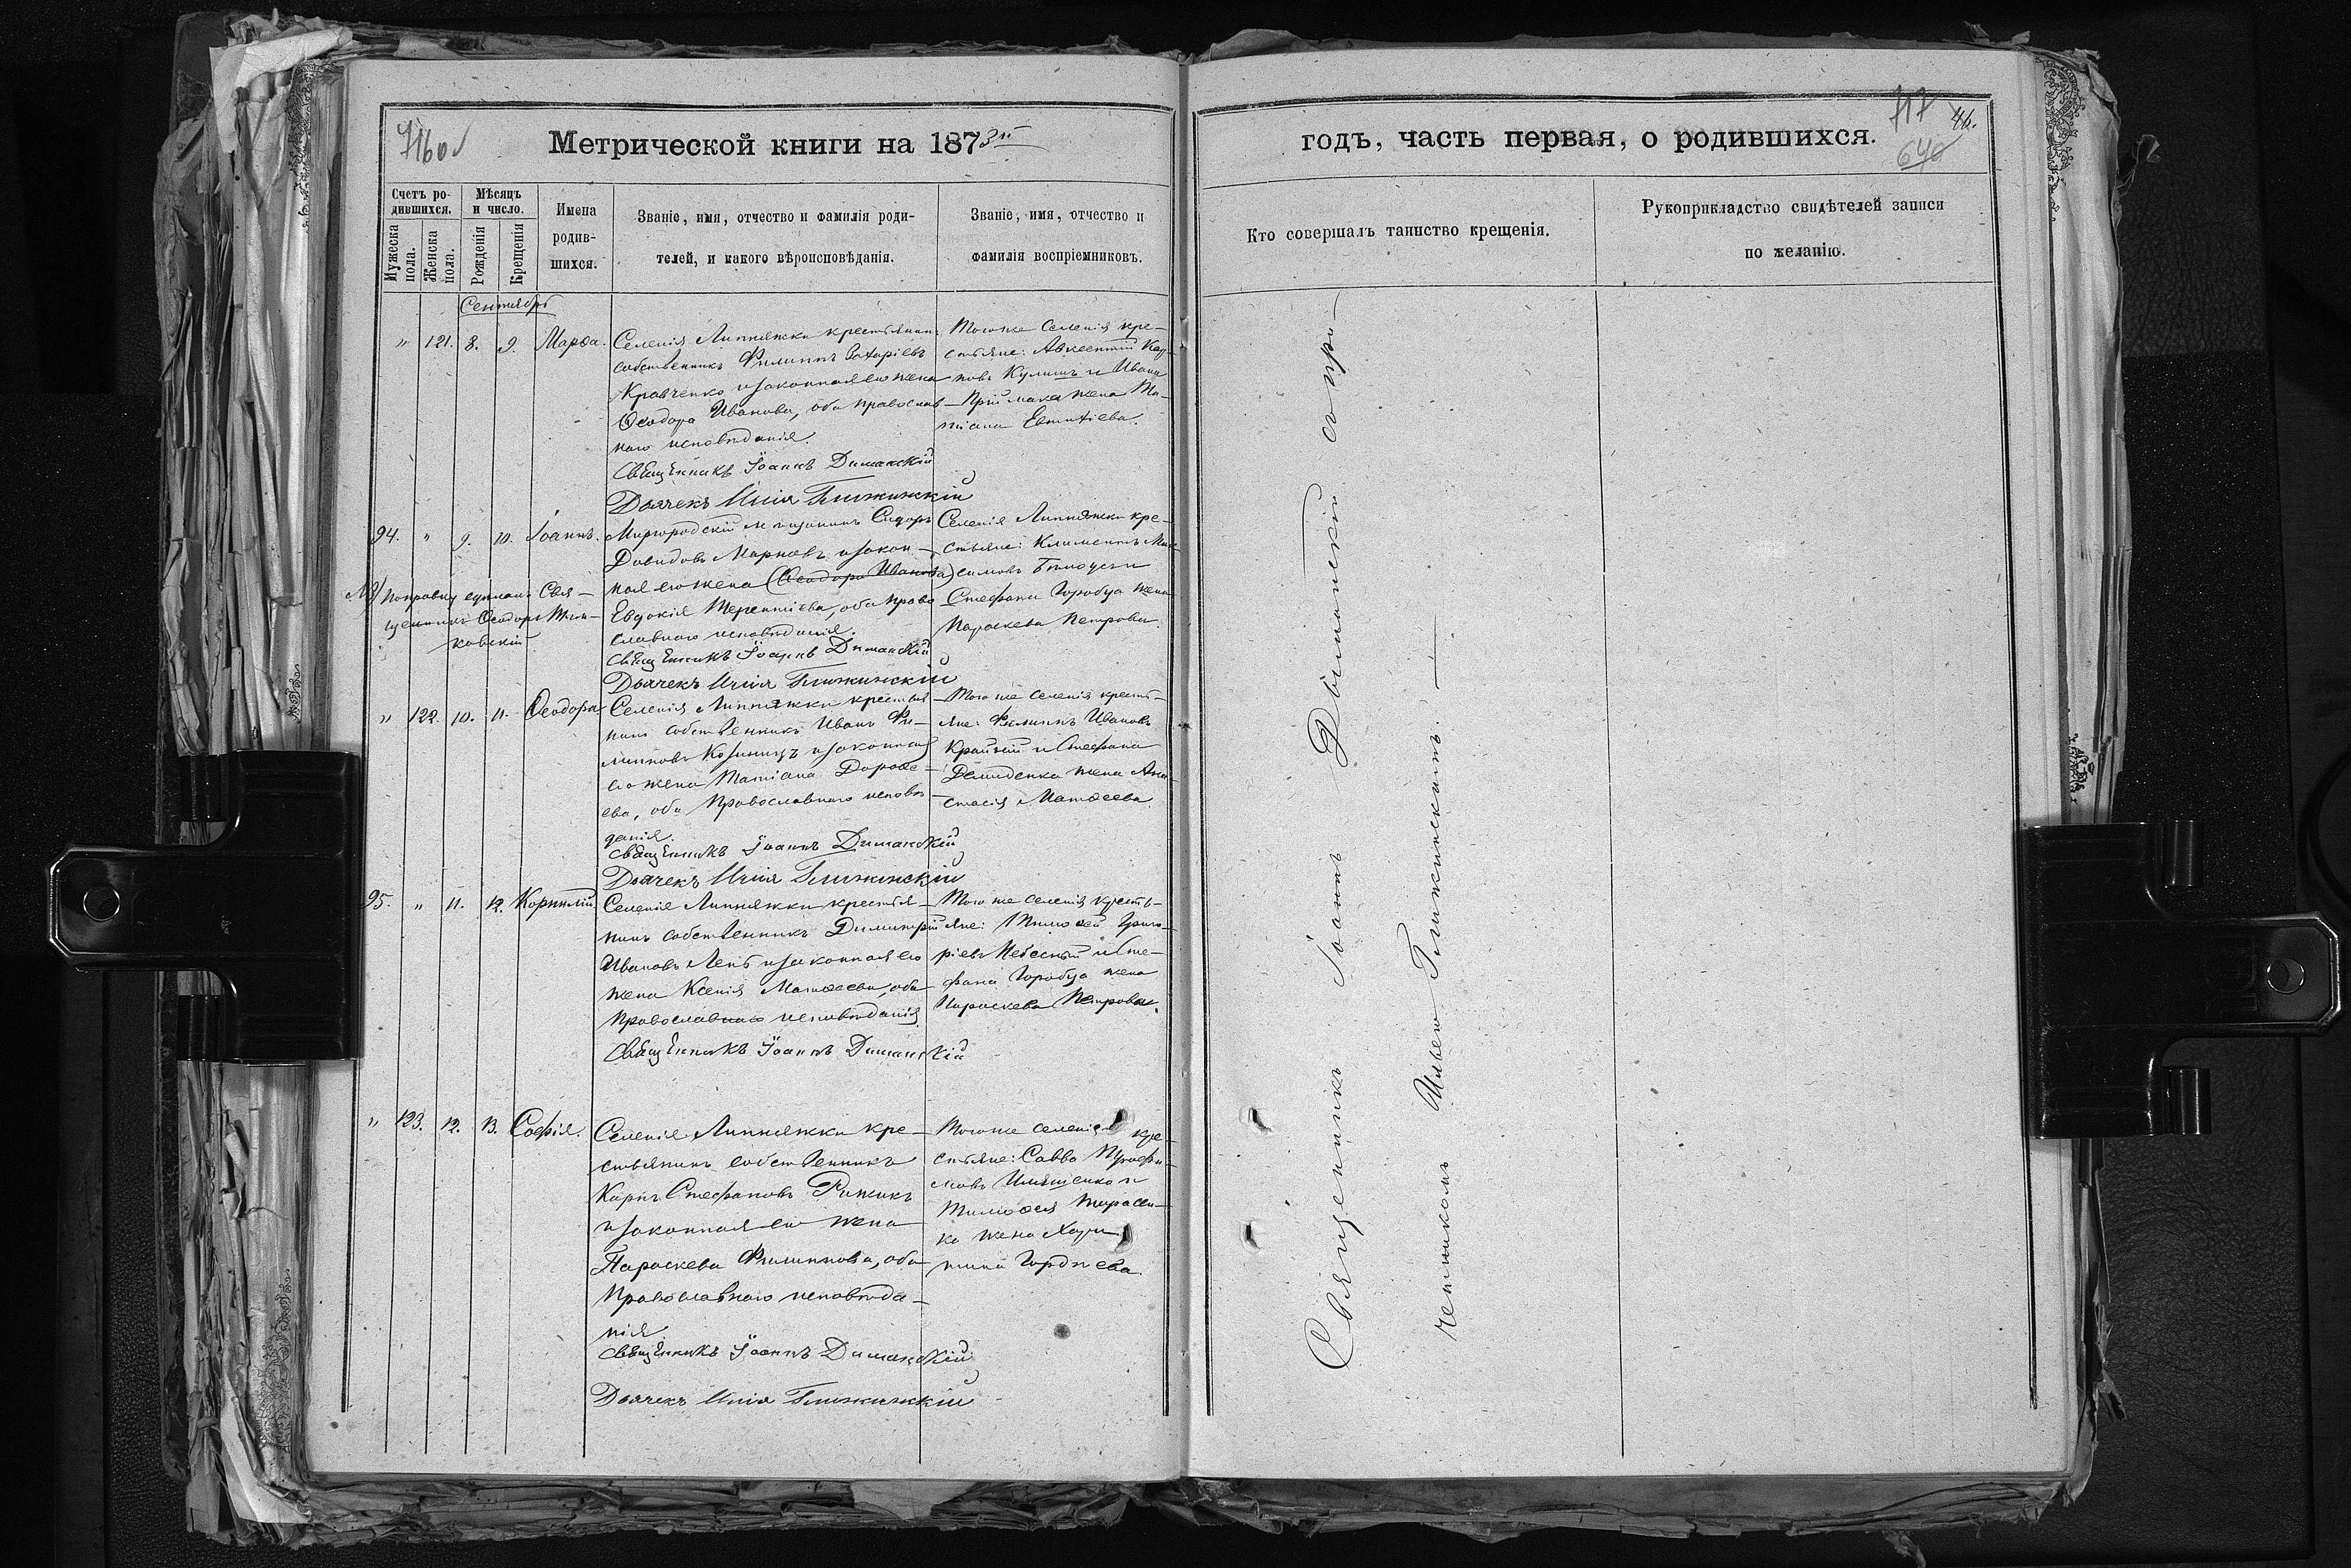 716 об
Метрической книги на 1873й
Счетъ родившихся.
Мужеска пола.
Женска пола.
Мѣсяцъ и число.
Рожденія
Крещенія
Имена родив-
шихся.
Званіе, имя, отчество и фамилія роди-
телей, и какого вѣроисповѣданія.
Званіе, имя, отчество и
фамилія воспріемниковъ.
Сентябрь
" 121. 8. 9. Марѳа.
Селенія Липняжки крестьянинъ
собственникъ Филиппъ Захаріевъ
Кравченко и законная его жена
Ѳеодора Иванова, оба православ-
наго исповѣданія.
Священникъ Іоаннъ Диманскій
Дьячекъ Илія
Того же Селенія кре-
стьяне: Авксентій
повъ Кулишъ и Ивана
жена Та-
тіана Евтихіева.
94. " 9. 10. Іоаннъ.
Миргородскій мѣщанинъ Сидоръ
Давидовъ и закон-
ная его жена (Ѳеодора Иванова)
Евдокія Терентіева, оба право-
славнаго исповѣданія.
Священникъ Іоаннъ Диманскій
Дьячекъ Илія
Селенія Липняжки кре-
стьяне: Климентъ Мак-
симовъ Бѣлоусъ и
Стефана Горобца жена
Параскева Петрова.
поправку сдѣлалъ Свя-
щенникъ Ѳеодоръ
ковскій
" 122. 10. 11. Ѳеодора
Селенія Липняжки крестья-
нинъ собственникъ Иванъ Фи-
липповъ и законная
его жена Татіана Дороѳе-
ева, оба Православнаго исповѣ-
данія.
Священникъ Іоаннъ Диманскій
Дьячекъ Илія
Того же селенія кресть-
яне: Филиппъ Ивановъ
Крайній и Стефана
Демиденка жена Ана-
стасія Матѳеева.
95. " 11. 12. Корнилій
Селенія Липняжки крестья-
нинъ собственникъ Димитрій
Ивановъ и законная его
жена Ксенія Матѳеева, оба
Православнаго исповѣданія.
Священникъ Іоаннъ Диманскій
Того же селенія кресть-
яне: Тимоѳей Григо-
ріевъ Небесный и Сте-
фана Горобца жена
Параскева Петрова.
" 123. 12. 13. Софія.
Селенія Липняжки кре-
стьянинъ собственникъ
Карпъ Стефановъ Рижикъ
и законная его жена
Параскева Филиппова, оба
Православнаго исповѣда-
нія
Священникъ Іоаннъ Диманскій
Дьячекъ Илія
Того же селенія кре-
стьяне: Савва Трофи-
мовъ Ильященко и
Тимоѳея Тарасен-
ка жена Хари-
тина Гордѣева.
717
46.
640
годъ, часть первая, о родившихся.
Кто совершалъ таинство крещенія.
Рукоприкладство свидѣтелей записи
по желанію.
Священникъ Іоаннъ Диманскій съ при-
четникомъ Ильею